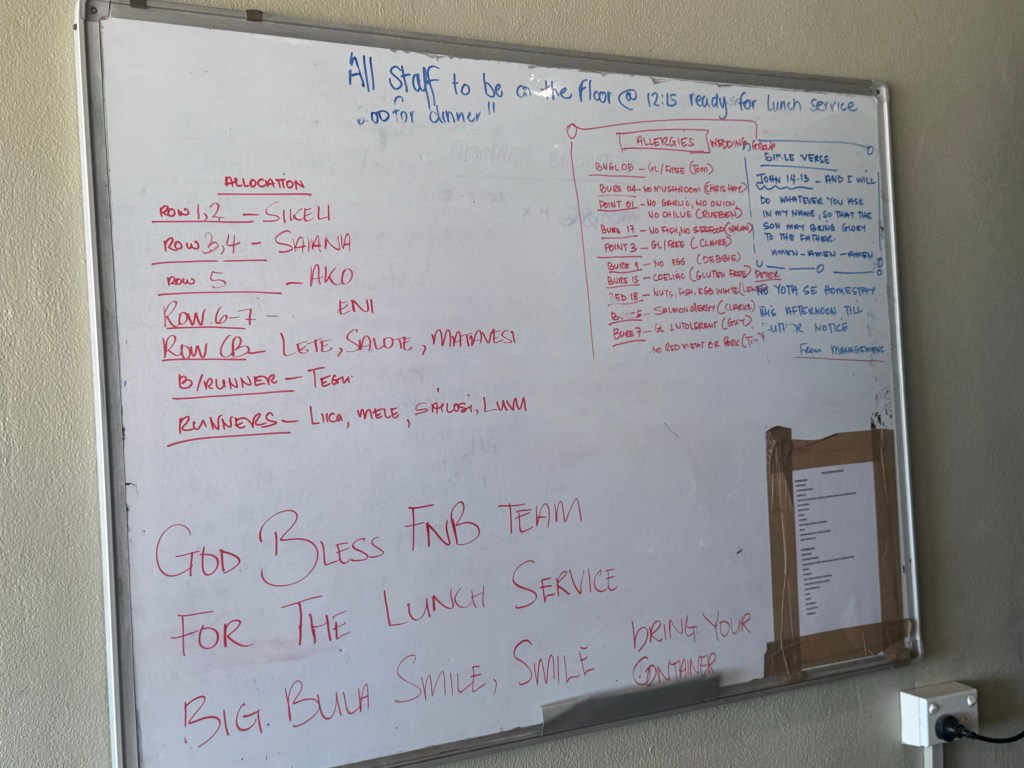 "All Staff to be on the floor @ 12:15 ready for lunch service
for dinner"
ALLOCATION
ROW 1,2 — SIKELI
ROW 3,4 — SAIANA
ROW 5 — AKO
ROW 6-7 - ENI
ROW CB LETE, SALOTE, MATANESI
B/RUNNER — TEGU
RUNNERS — LIKA, MELE, SAILOSI, LUVU
GOD BLESS FNB TEAM
FOR THE LUNCH SERVICE
BIG. BULA SMILE, SMILE
BRING YOUR
CONTAINER
ALLERGIES WEDDING GROUP
BNGL 08 — GL/FREE (TOM)
BURE 04 — NO MUSHROOM (CHRIS)
POINT 01 — NO GARLIC, NO ONION,
NO CHILLIE (RUEBEN)
BURE 17 — NO FISH, NO SEAFOOD
POINT 3 — GL/FREE (CLAIRE)
BURE 9 — NO EGG (DEBBIE)
BURE 15 — COELIAC (GLUTEN FREE)
18 — NUTS, FISH, EGG WHITE
SALMON ALERGY (CLARKE)
BURE 7 — GL INTOLERANT (GUY)
NO RED MEAT OR PORK
BIBLE VERSE
JOHN 14:13 — AND I WILL
DO WHATEVER YOU ASK
IN MY NAME, SO THAT THE
SON MAY BRING GLORY
TO THE FATHER.
AMEN — AMEN — AMEN
PETER
NO YOTA SE HOMESTAY
THIS AFTERNOON TILL
NOTICE
FROM MANAGEMENT